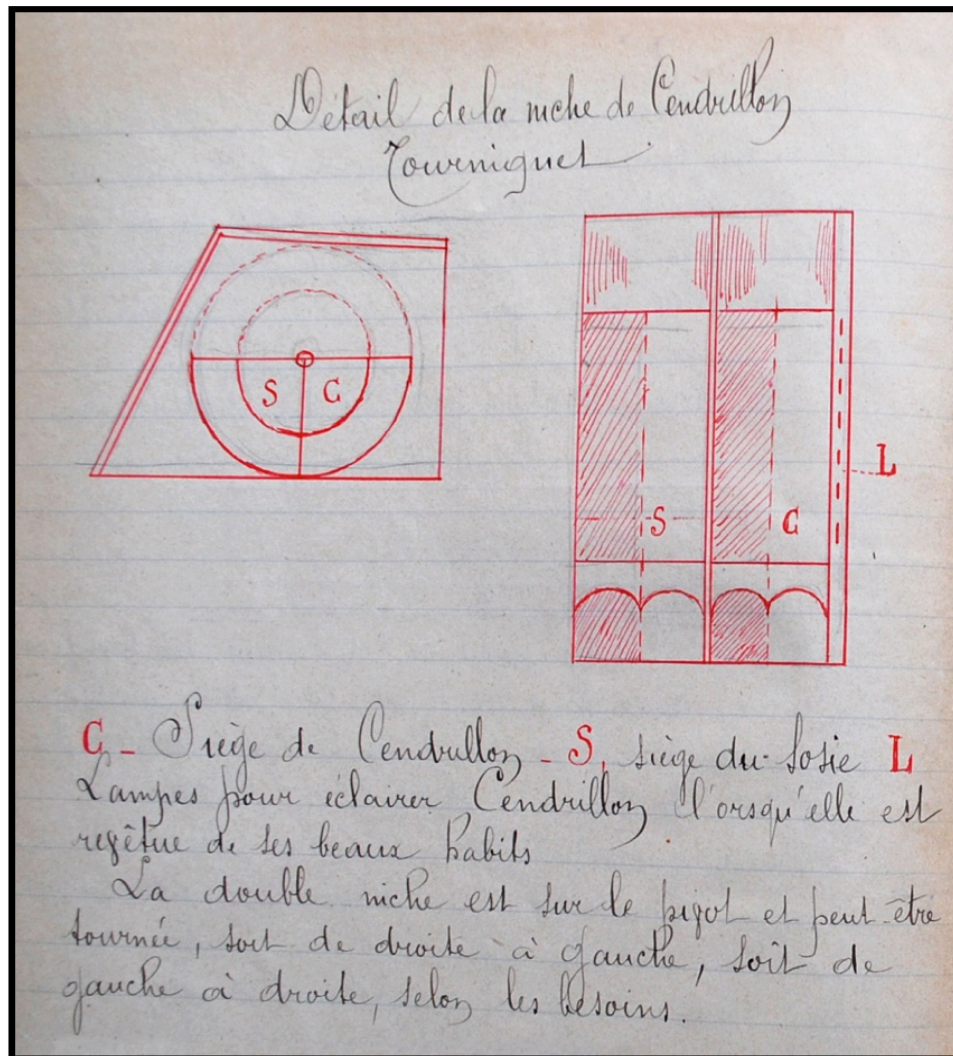 Détail de la niche de Cendrillon
Tourniquet
S C
L
S C
C - Siège de Cendrillon - S, siège du sosie L
Lampes pour éclairer Cendrillon l'orsqu'elle est
revêtue de ses beaux habits
La double niche est sur le pivot et peut-être
tournée, soit de droite à gauche, soit de
gauche à droite, selon les besoins.